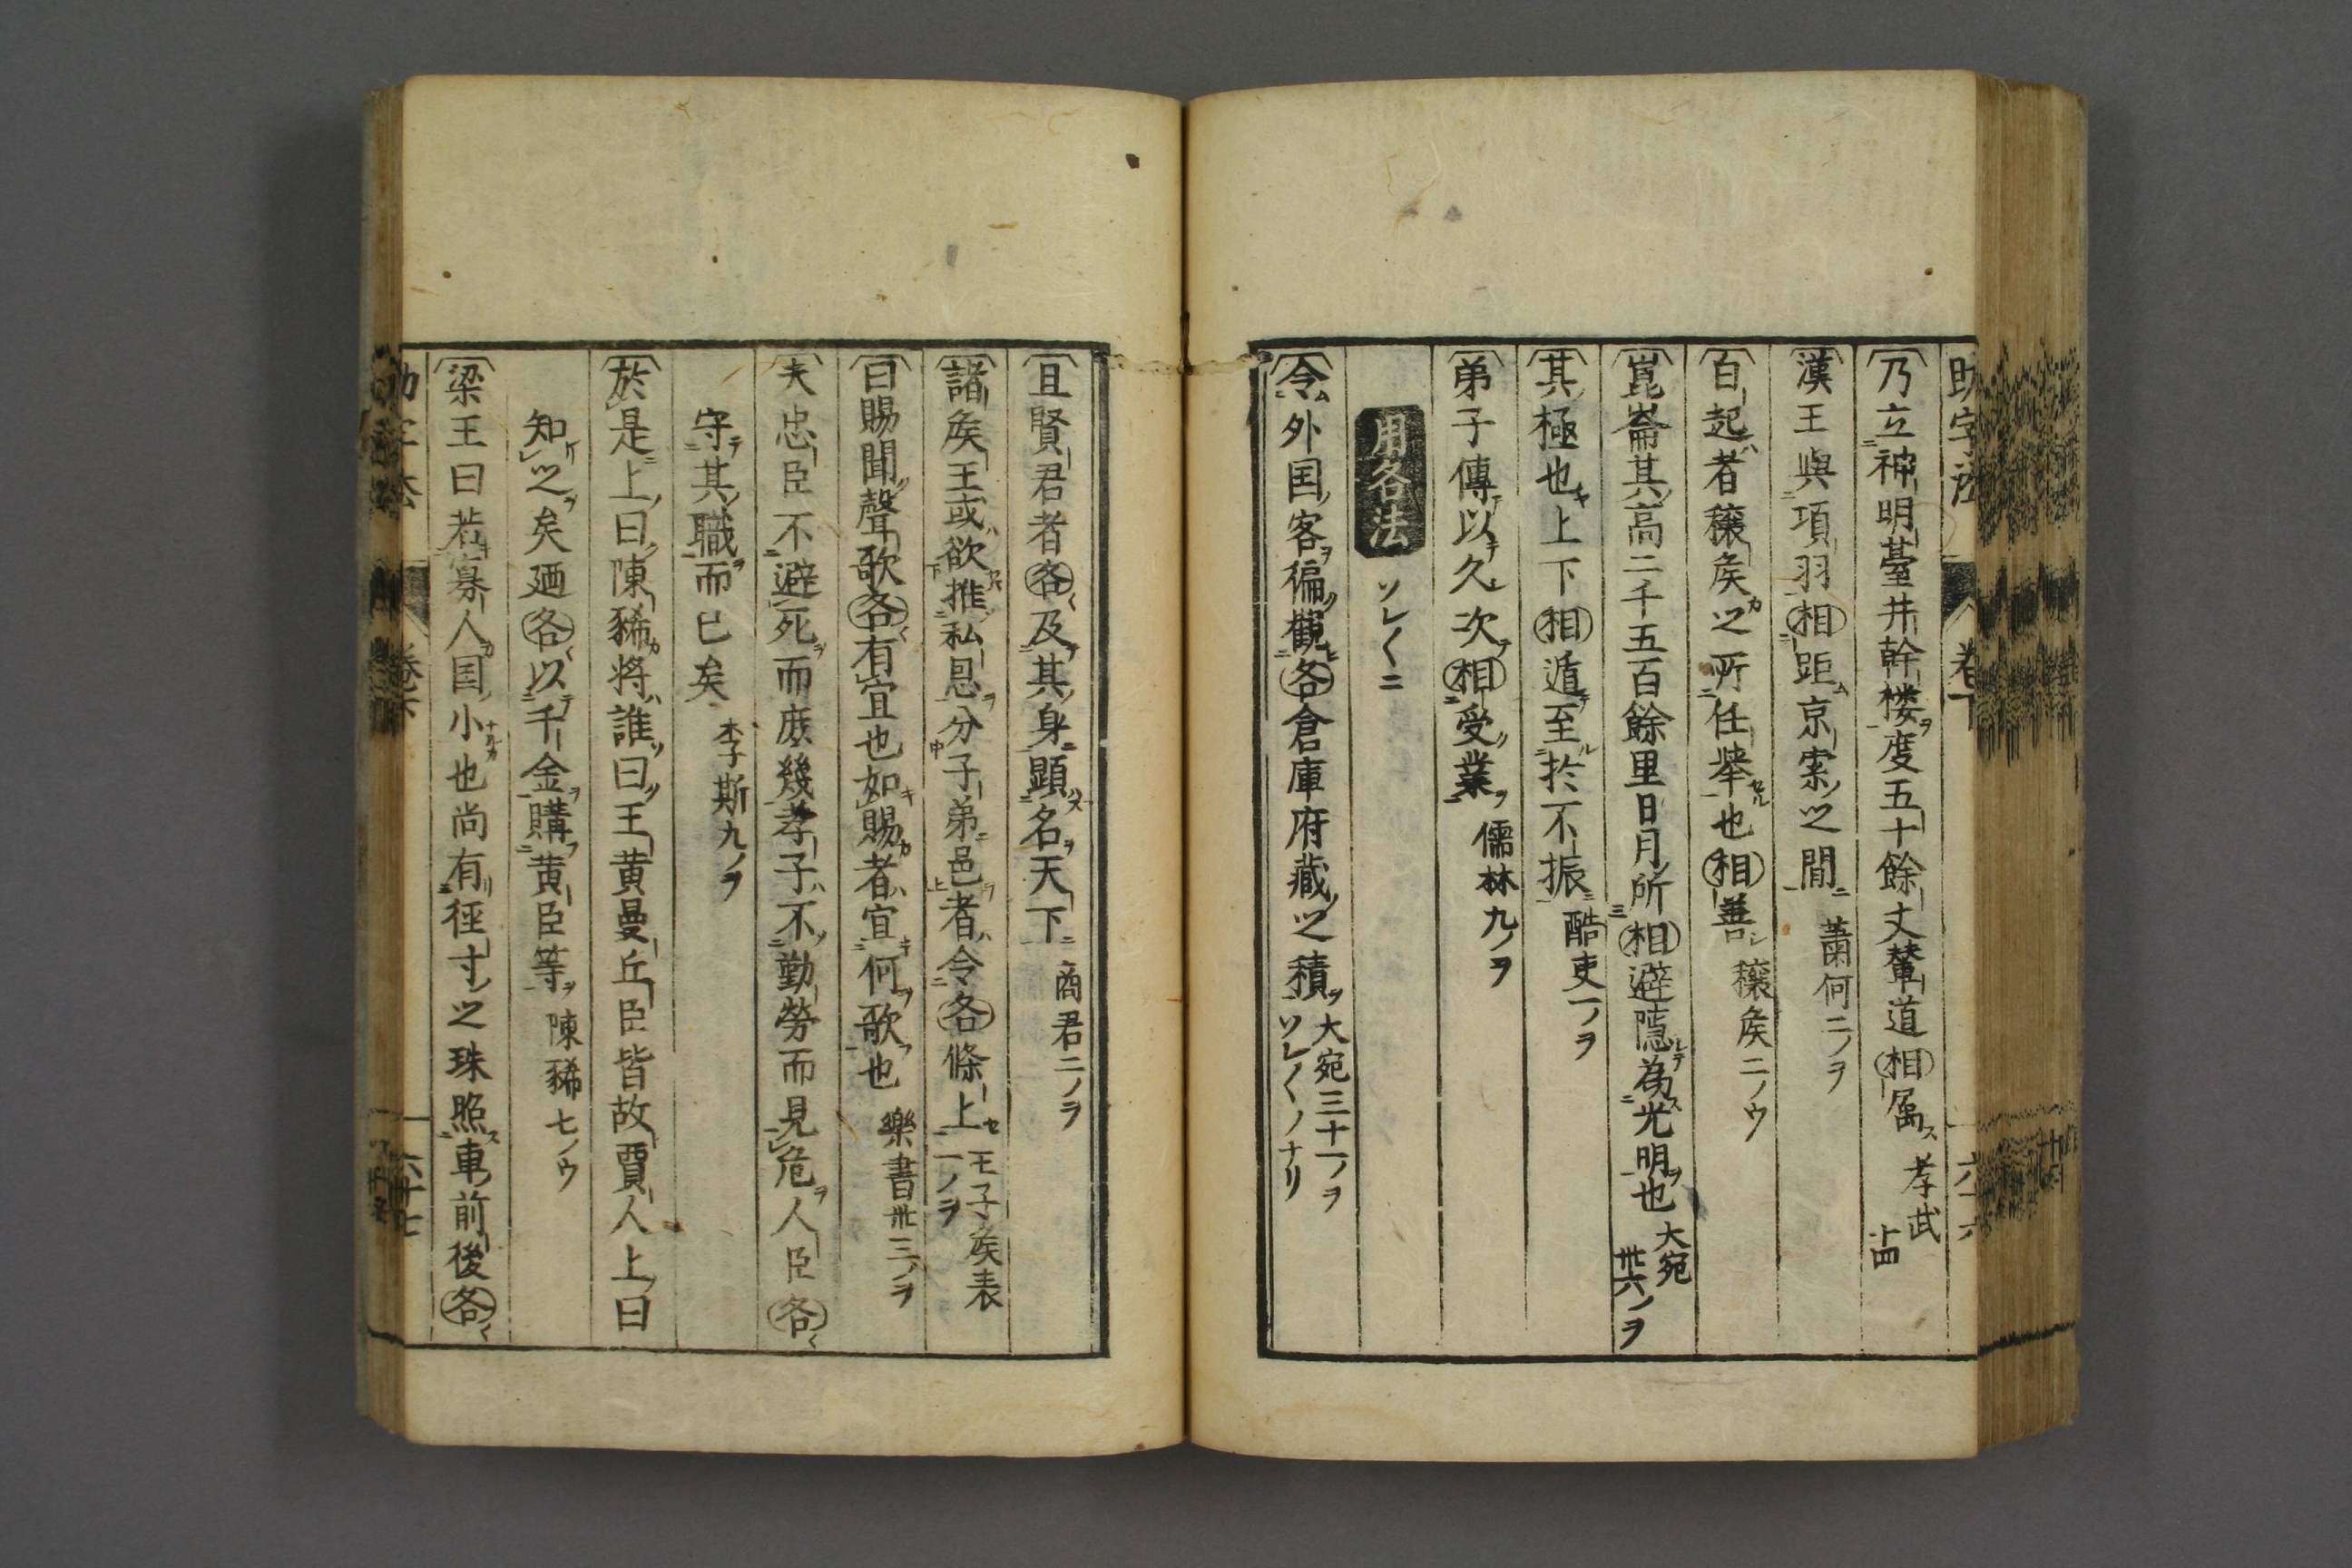 乃立神明臺井幹楼度五十餘丈輦道相属 孝武 上四
漢王與項羽相距京索之間 蕭何二ノヲ
白起者穣矦之所任挙也相善 穣矦二ノウ
崑崙其高二千五百餘里日月所相避隠為光明也 大宛卅六ノヲ
其極也上下相遁至扵不振 酷吏一ノヲ
弟子傳以久次相受業 儒林九ノヲ
用各法 ソレ〱ニ
令外国客徧觀各倉庫府蔵之積 大宛三十一ノヲ ソレ〱ノナリ
且賢君者各及其身顕名天下 商君二ノヲ
諸矦王或欲推私恩分子弟邑者令各條上 王子矦表一ノヲ
曰賜聞聲歌各有宜也如賜者宜何歌也 樂書卅三ノヲ
夫忠臣不避死而庶幾孝子不勤勞而見危人臣各
守其職而已矣 李斯九ノヲ
於是上曰陳豨将誰曰王黄曼丘臣皆故賈人上曰
知之矣廼各以千金購黄臣等 陳豨七ノウ
梁王曰若寡人国小也尚有徑寸之珠照車前後各